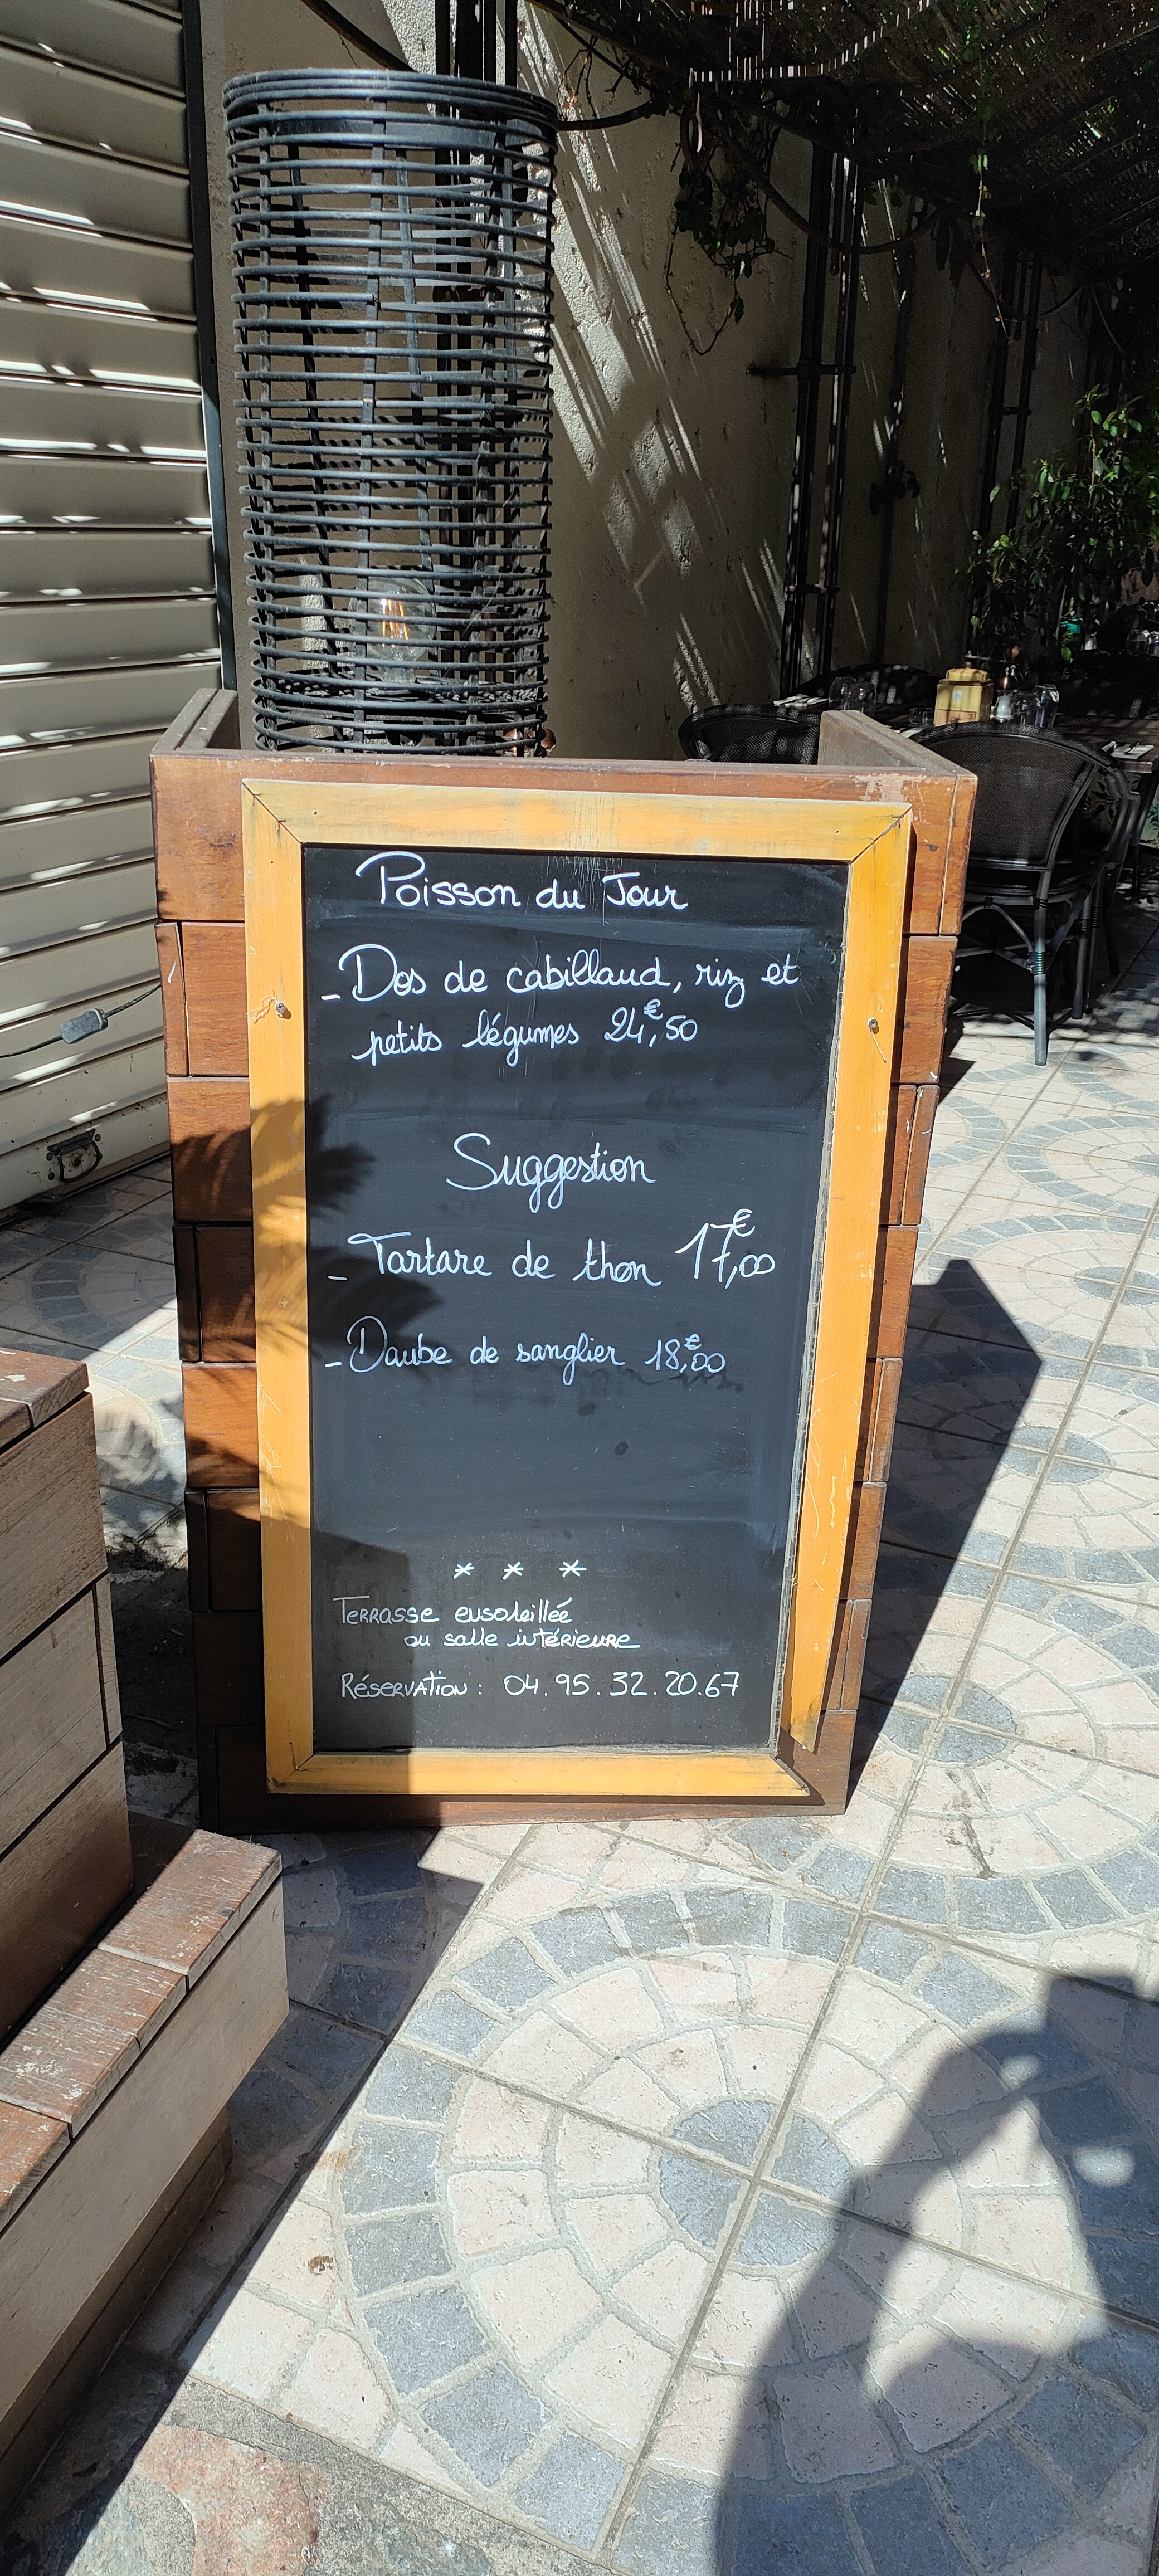 Poisson du Jour
- Dos de cabillaud, riz et
petits légumes 24€,50
Suggestion
- Tartare de thon 17€,00
- Daube de sanglier 18€,00
* * *
Terrasse ensoleillée
ou salle intérieure
Réservation : 04.95.32.20.67